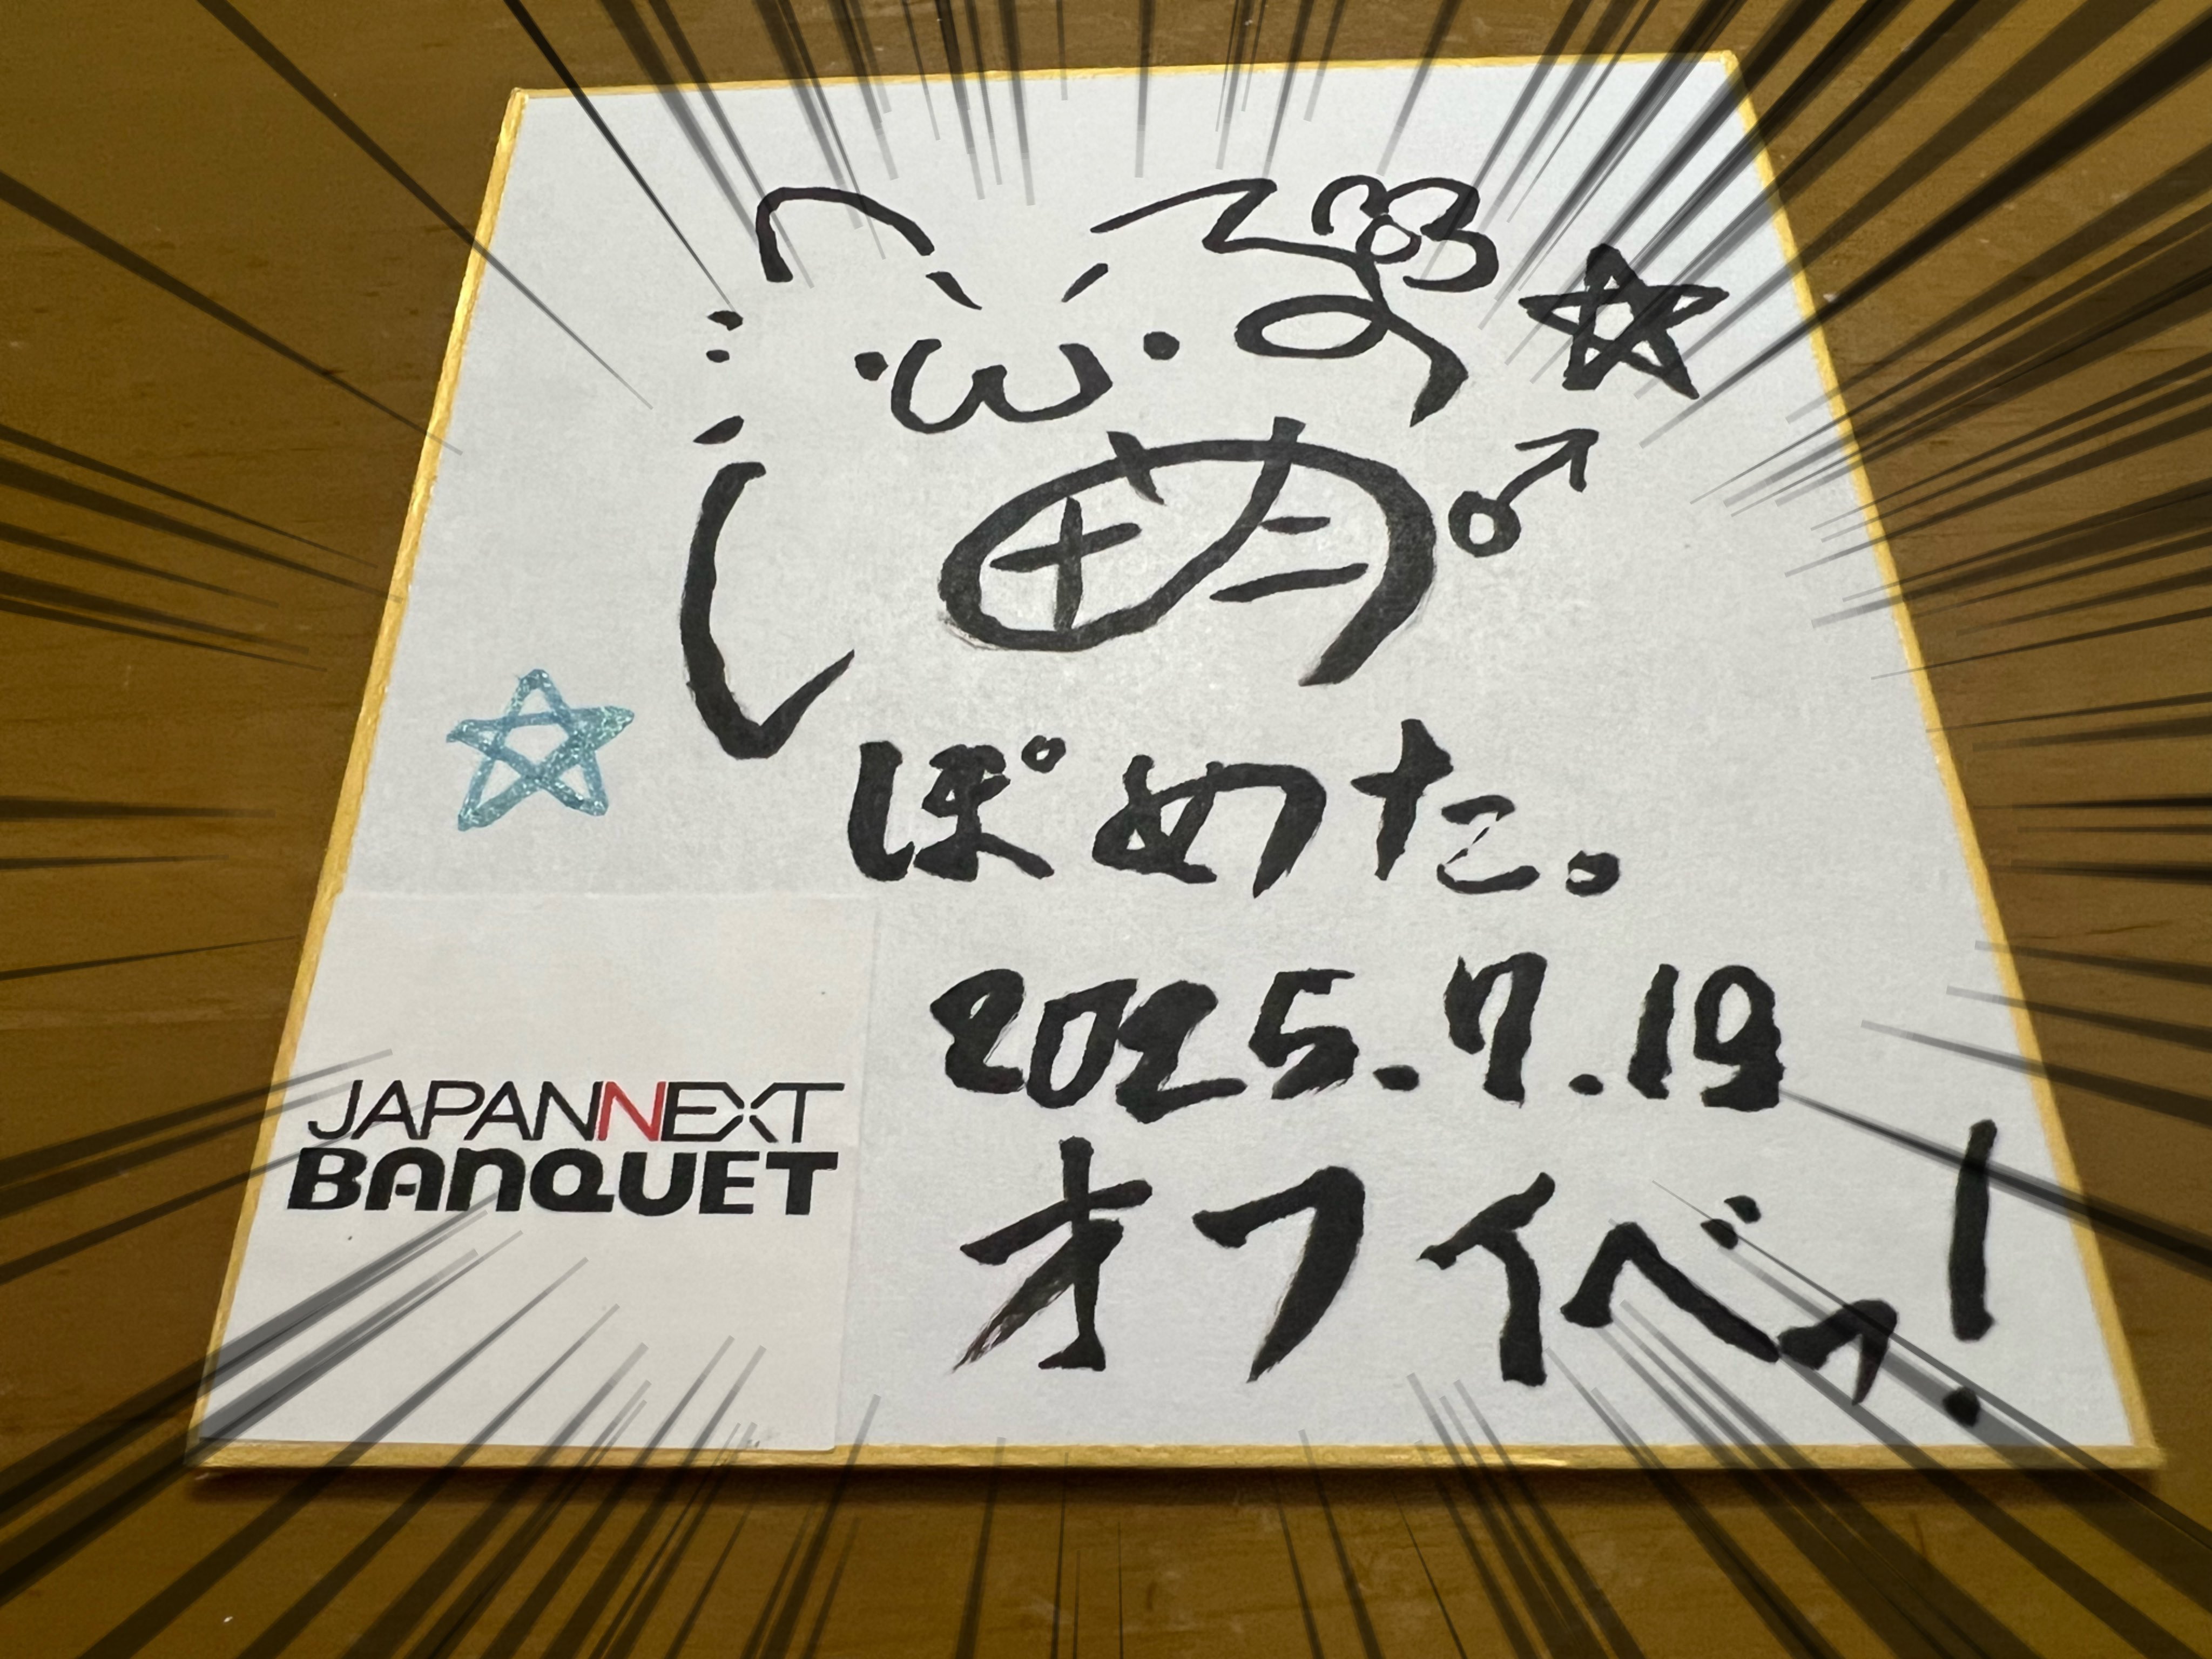 ぽめた。
2025.7.19
オフイベッ!
JAPANNEXT
BANQUET